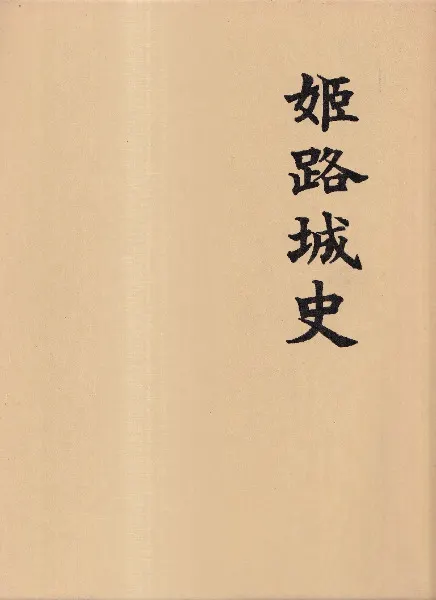 姫路城史